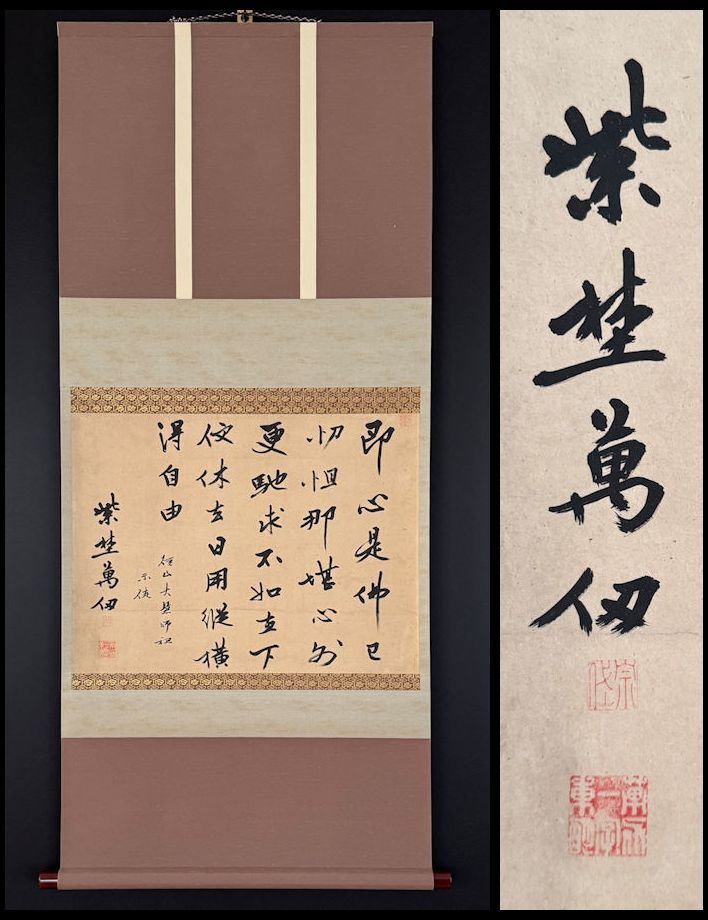 即心是佛已
忉怛那堪心外
更馳求不如直下
便休去日用縱橫
得自由
徑山大慧師祖
示偈
紫埜萬仞
紫埜萬仞